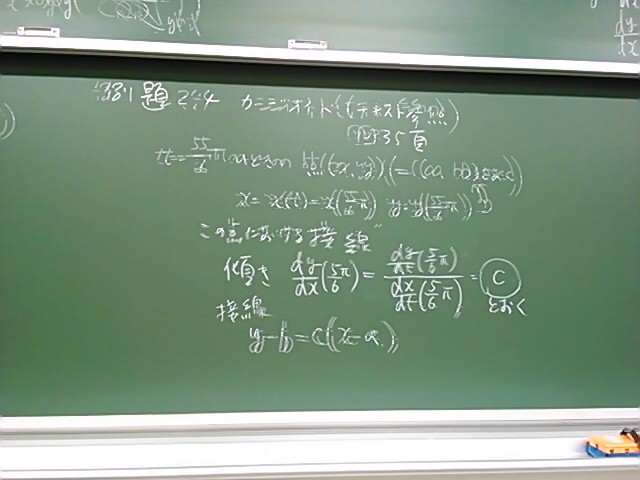 例題2.4 カージオイド(テキスト参照)
P135頁
t=5/6πのときの 点(x,y)(=(a,b)とおく)
x=x(t)=x(5/6π) y=y(5/6π)
この点における接線
傾き dy/dx(5/6π)=dy/dt(5/6π)/dx/dt(5/6π)=C
とおく
接線
y-b=c(x-a)
dy/dx